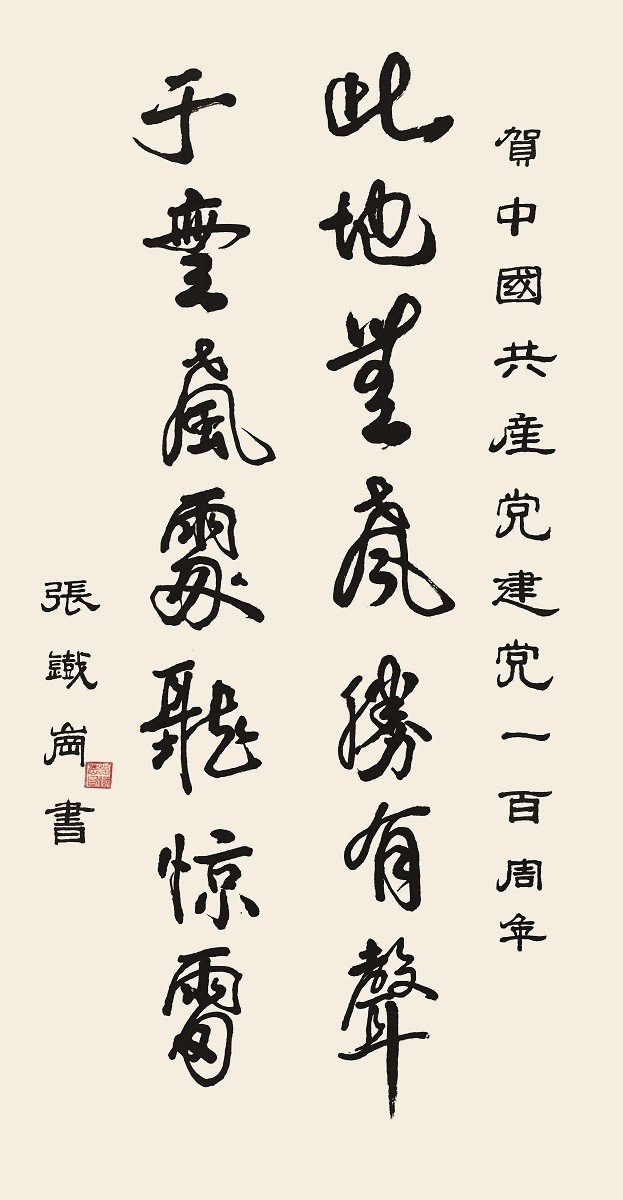 賀中國共産党建党一百周年
此地無声勝有聲
于無声處聽惊雷
張鐵崗書